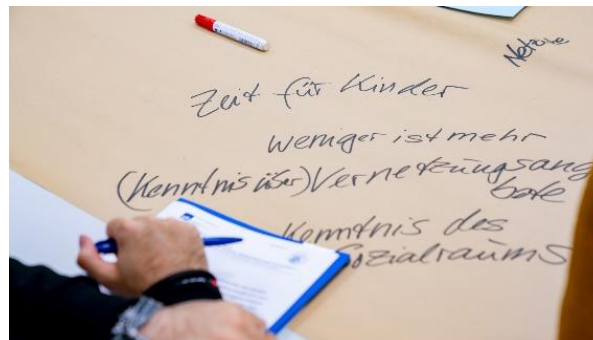 Netze
Zeit für Kinder
weniger ist mehr
(Kenntnis über) Vernetzungsang
bote
Kenntnis des
Sozialraums